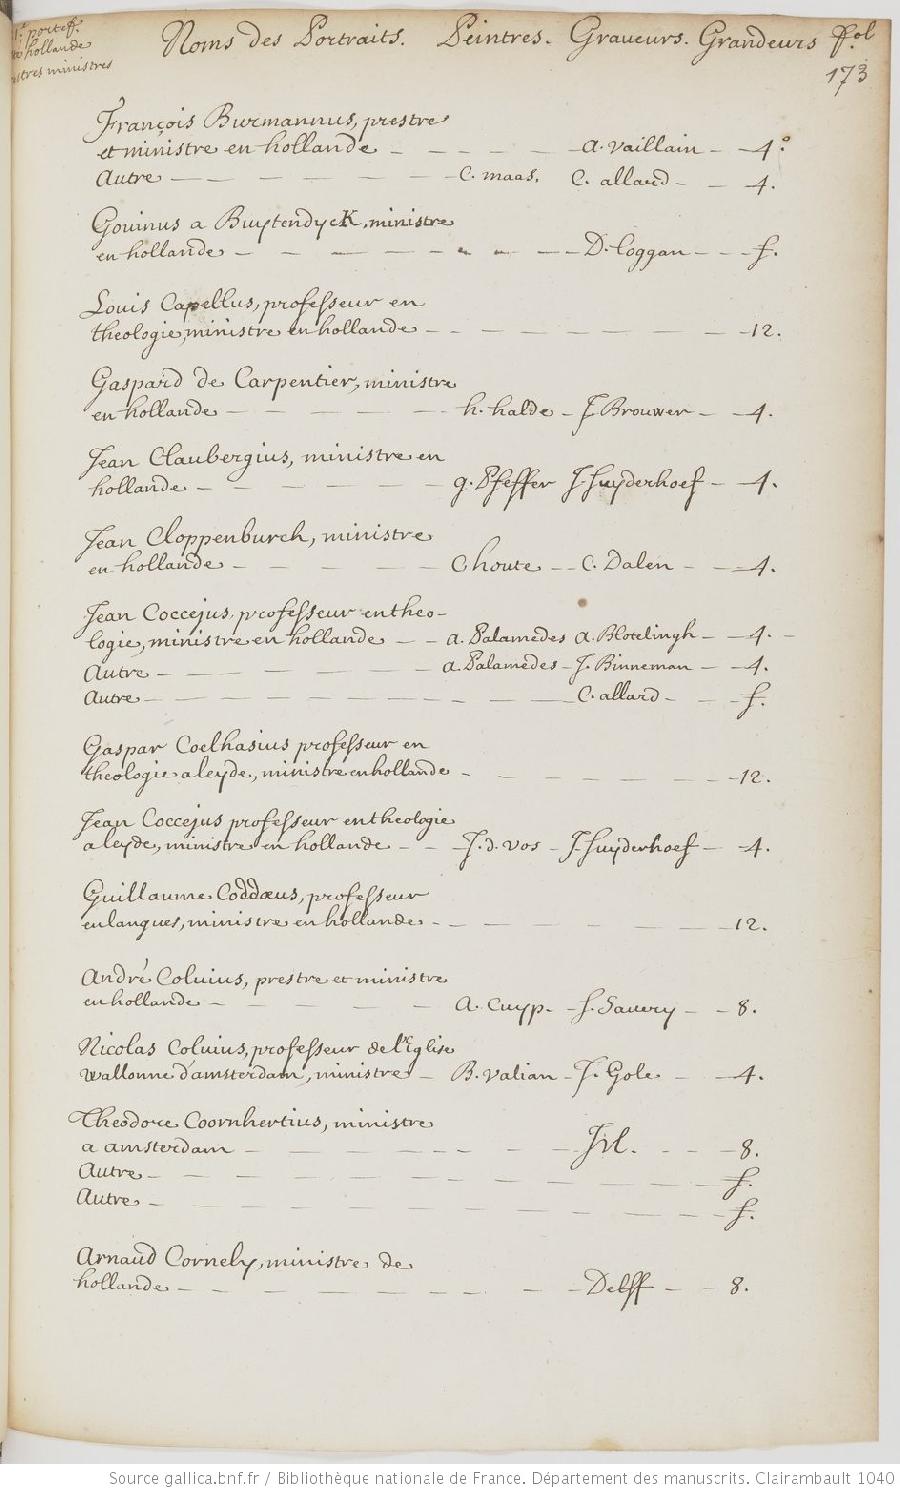 portef.
hollande
ministres
Noms des Portraits. Peintres. Graveurs. Grandeurs fol
173
François Burmannus, prestre
et ministre en hollande — — — — — a. vaillain — 4°
Autre — — — — — — C. maas. C. allard — — 4.
Gouinus a BuytendycK, ministre
en hollande — — — — — — — D. loggan — — — f.
Louis Capellus, professeur en
theologie, ministre en hollande — — — — — — — — 12.
Gaspard de Carpentier, ministre
en hollande — — — — — h. halde — J. Brouwer — — 4.
Jean Claubergius, ministre en
hollande — — — — — — g. Pfeffer J. Suyderhoef — 4.
Jean Cloppenburch, ministre
en hollande — — — — — Choute — — C. Dalen — — 4.
Jean Coccejus, professeur en theo-
logie, ministre en hollande — — a. Palamedes a. Blotelingh — — 4. —
Autre — — — — — — a Palamedes — J. Binneman — — 4.
Autre — — — — — — — — C. allard — — f.
Gaspar Coelhasius professeur en
theologie a leyde, ministre en hollande — — — — — — — 12.
Jean Coccejus professeur en theologie
a leyde, ministre en hollande — — J. d. vos — J. Suyderhoef — 4.
Guillaume Coddæus, professeur
en langues, ministre en hollande — — — — — — — 12.
André Coluius, prestre et ministre
en hollande — — — — — a. Cuyp. — S. Savery — — 8.
Nicolas Coluius, professeur de l'Eglise
wallonne d'amsterdam, ministre — B. valian — J. Gole — — 4.
Theodore Coornhertius, ministre
a amsterdam — — — — — — — — — 8.
Autre — — — — — — — — — — f.
Autre — — — — — — — — — — f.
Arnaud Cornely, ministre de
hollande — — — — — — — — Delff — — 8.
Source gallica.bnf.fr / Bibliothèque nationale de France. Département des manuscrits. Clairambault 1040